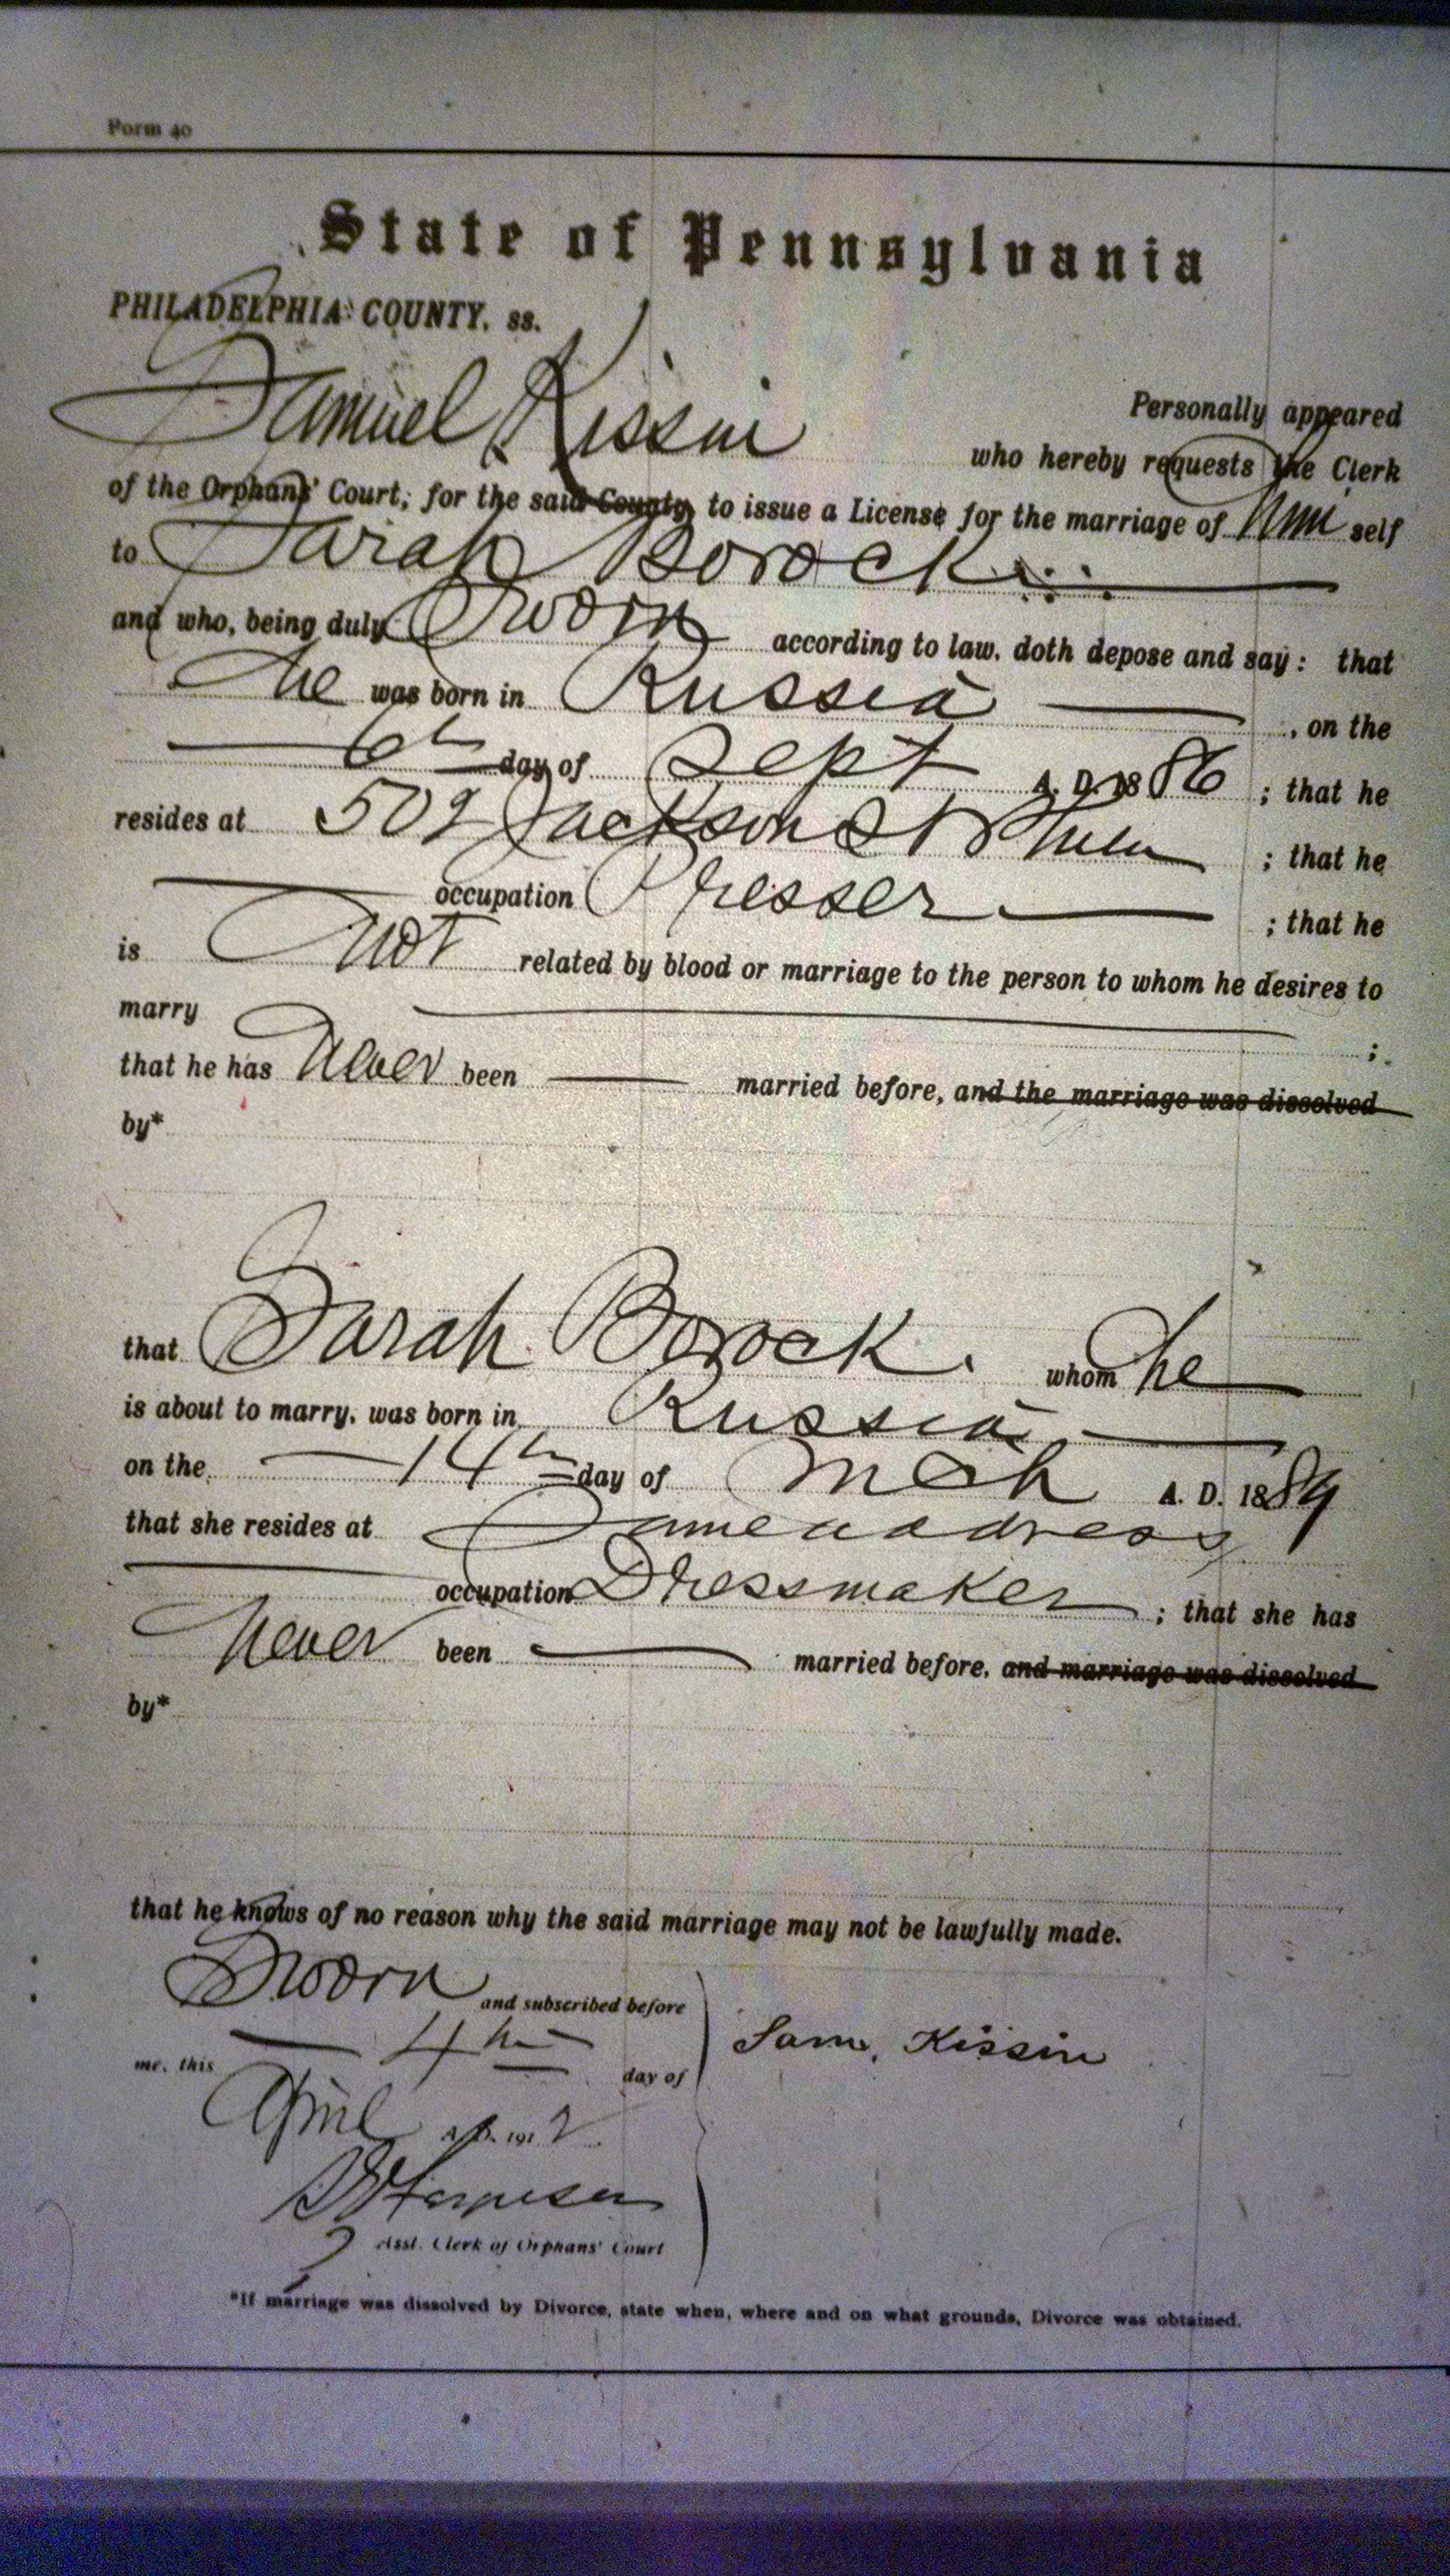 Form 40
State of Pennsylvania
PHILADELPHIA COUNTY, ss.
Personally appeared
Samuel Kissin who hereby requests the Clerk
of the Orphans' Court; for the said County, to issue a License for the marriage of him self
to Sarah Borock
and who, being duly Sworn according to law, doth depose and say: that
he was born in Russia , on the
6th day of Sept A. D. 1886 ; that he
resides at 509 Jackson St Phila ; that he
occupation Presser ; that he
is not related by blood or marriage to the person to whom he desires to
marry ;
that he has Never been married before, and the marriage was dissolved
by*
that Sarah Borock. whom he
is about to marry, was born in Russia
on the 14th day of Mch A. D. 1889
that she resides at Same address
occupation Dressmaker ; that she has
Never been married before, and marriage was dissolved
by*
that he knows of no reason why the said marriage may not be lawfully made.
Sworn and subscribed before
me, this 4th day of
April A. D. 1912
Sam, Kissin
Asst. Clerk of Orphans' Court
*If marriage was dissolved by Divorce, state when, where and on what grounds, Divorce was obtained.